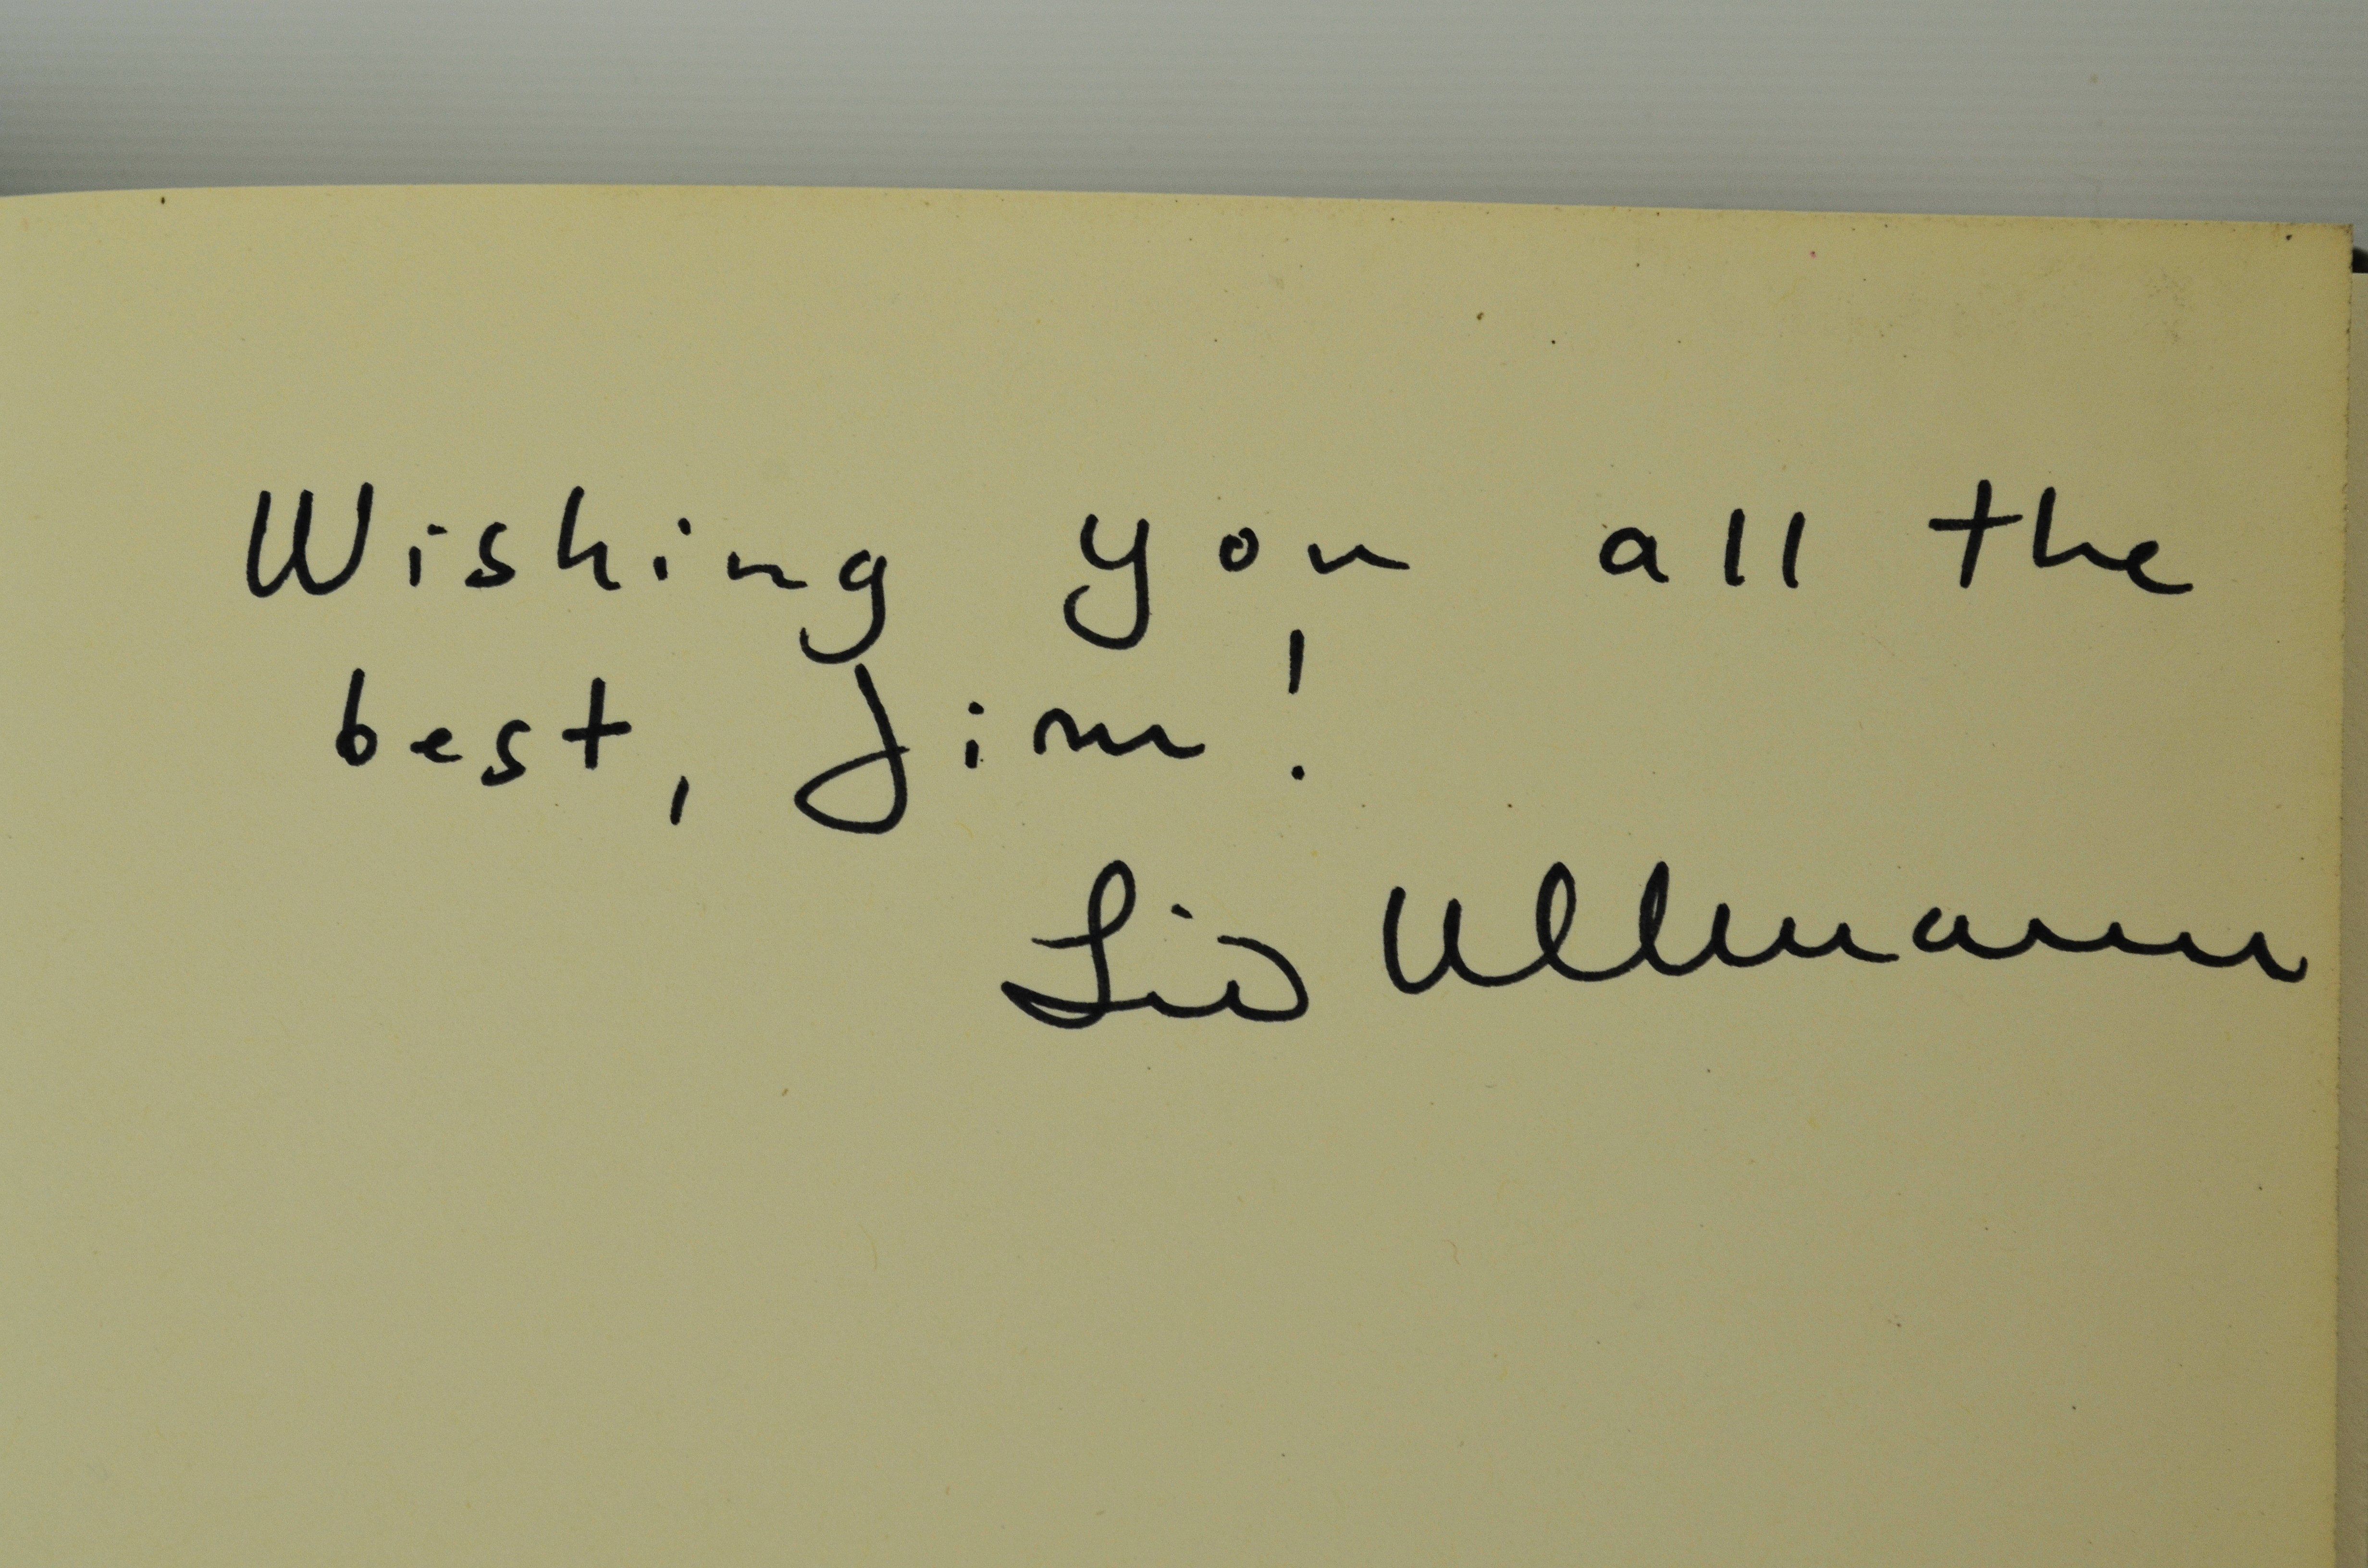 Wishing you all the
best, Jim!
Liv Ullmann